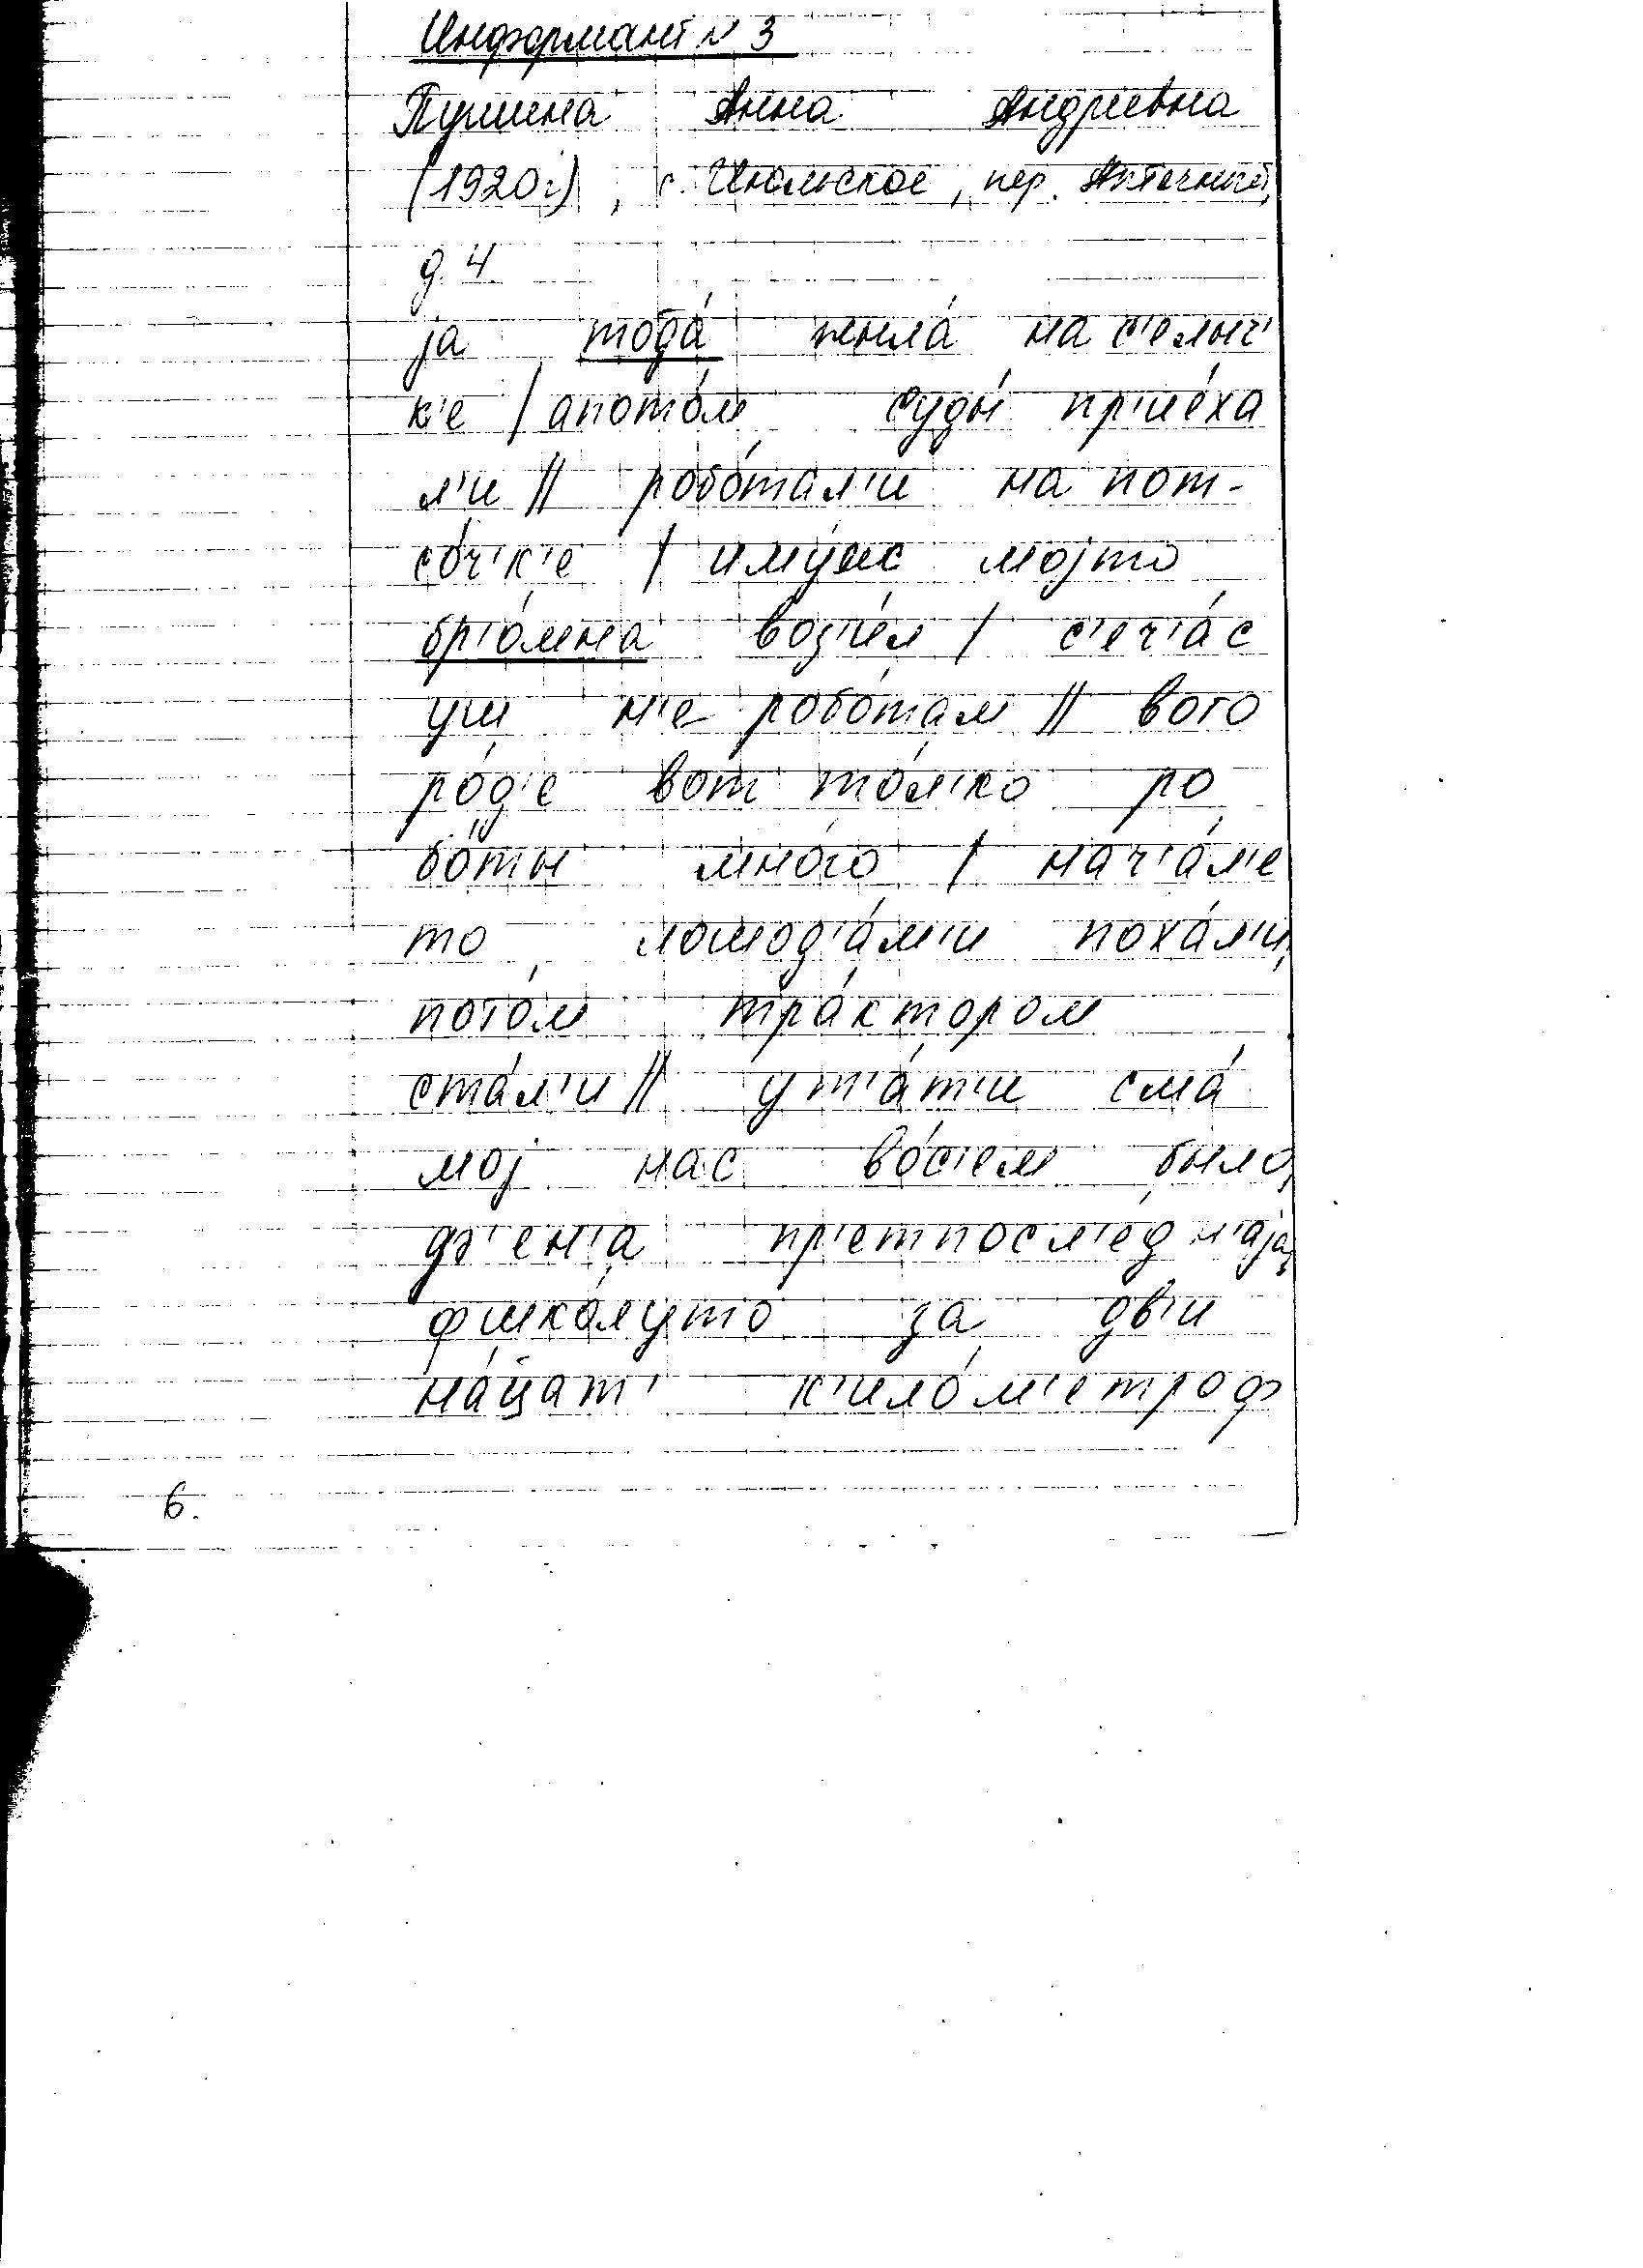 Информант № 3
Пушина Анна Андреевна
(1920г), с. Июльское, пер. Аптечный,
д. 4
jа тода́ жыла́ на с'елыч'
к'е / апото́м суды́ пр'ие́ха
л'и // робо́тал'и на пот-
со́ч'к'е / иму́ж мојто
бр'о́мна воз'и́л / с'еч'а́с
уш н'е робо́там // вого
ро́д'е вот то́л'ко ро
бо́ты мно́го / нач'а́л'е
то лошод'а́м'и поха́л'и,
пото́м тра́ктором
ста́л'и // ут'а́т'и сма́
мој нас во́с'ем было,
ф'ен'а пр'етпосл'е́дн'аjа,
фшко́луто за дв'и
на́цат' к'ило́м'етроф
6.